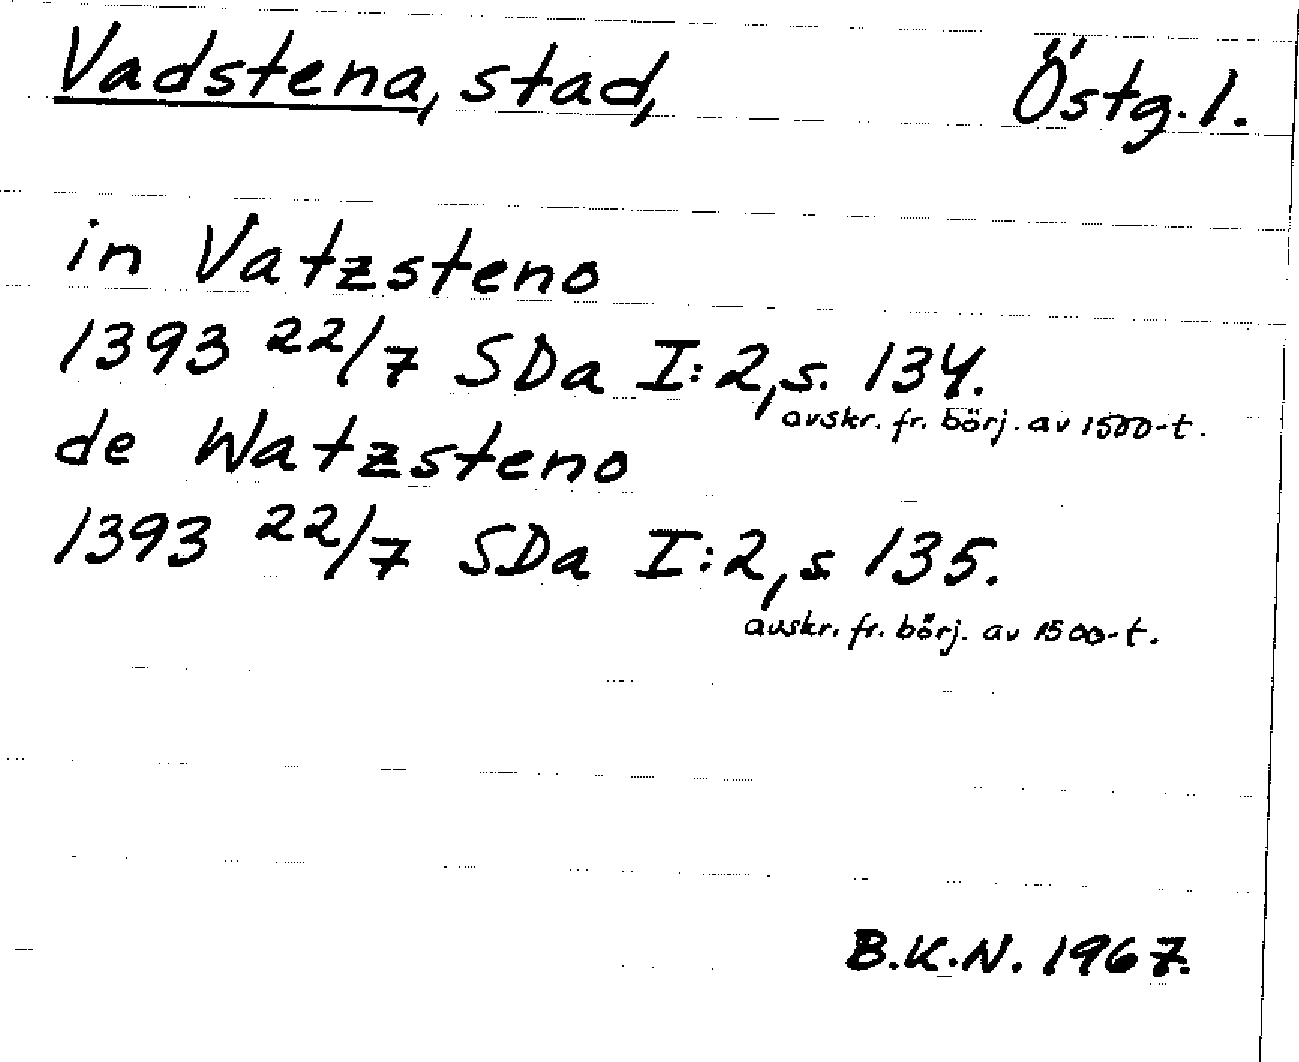 Vadstena, stad, Östg. l.
in Vatzsteno
1393 22/7 SDa I:2, s. 134.
avskr. fr. börj. av 1500-t.
de Watzsteno
1393 22/7 SDa I:2, s 135.
avskr. fr. börj. av 1500-t.
B.K.N. 1967.